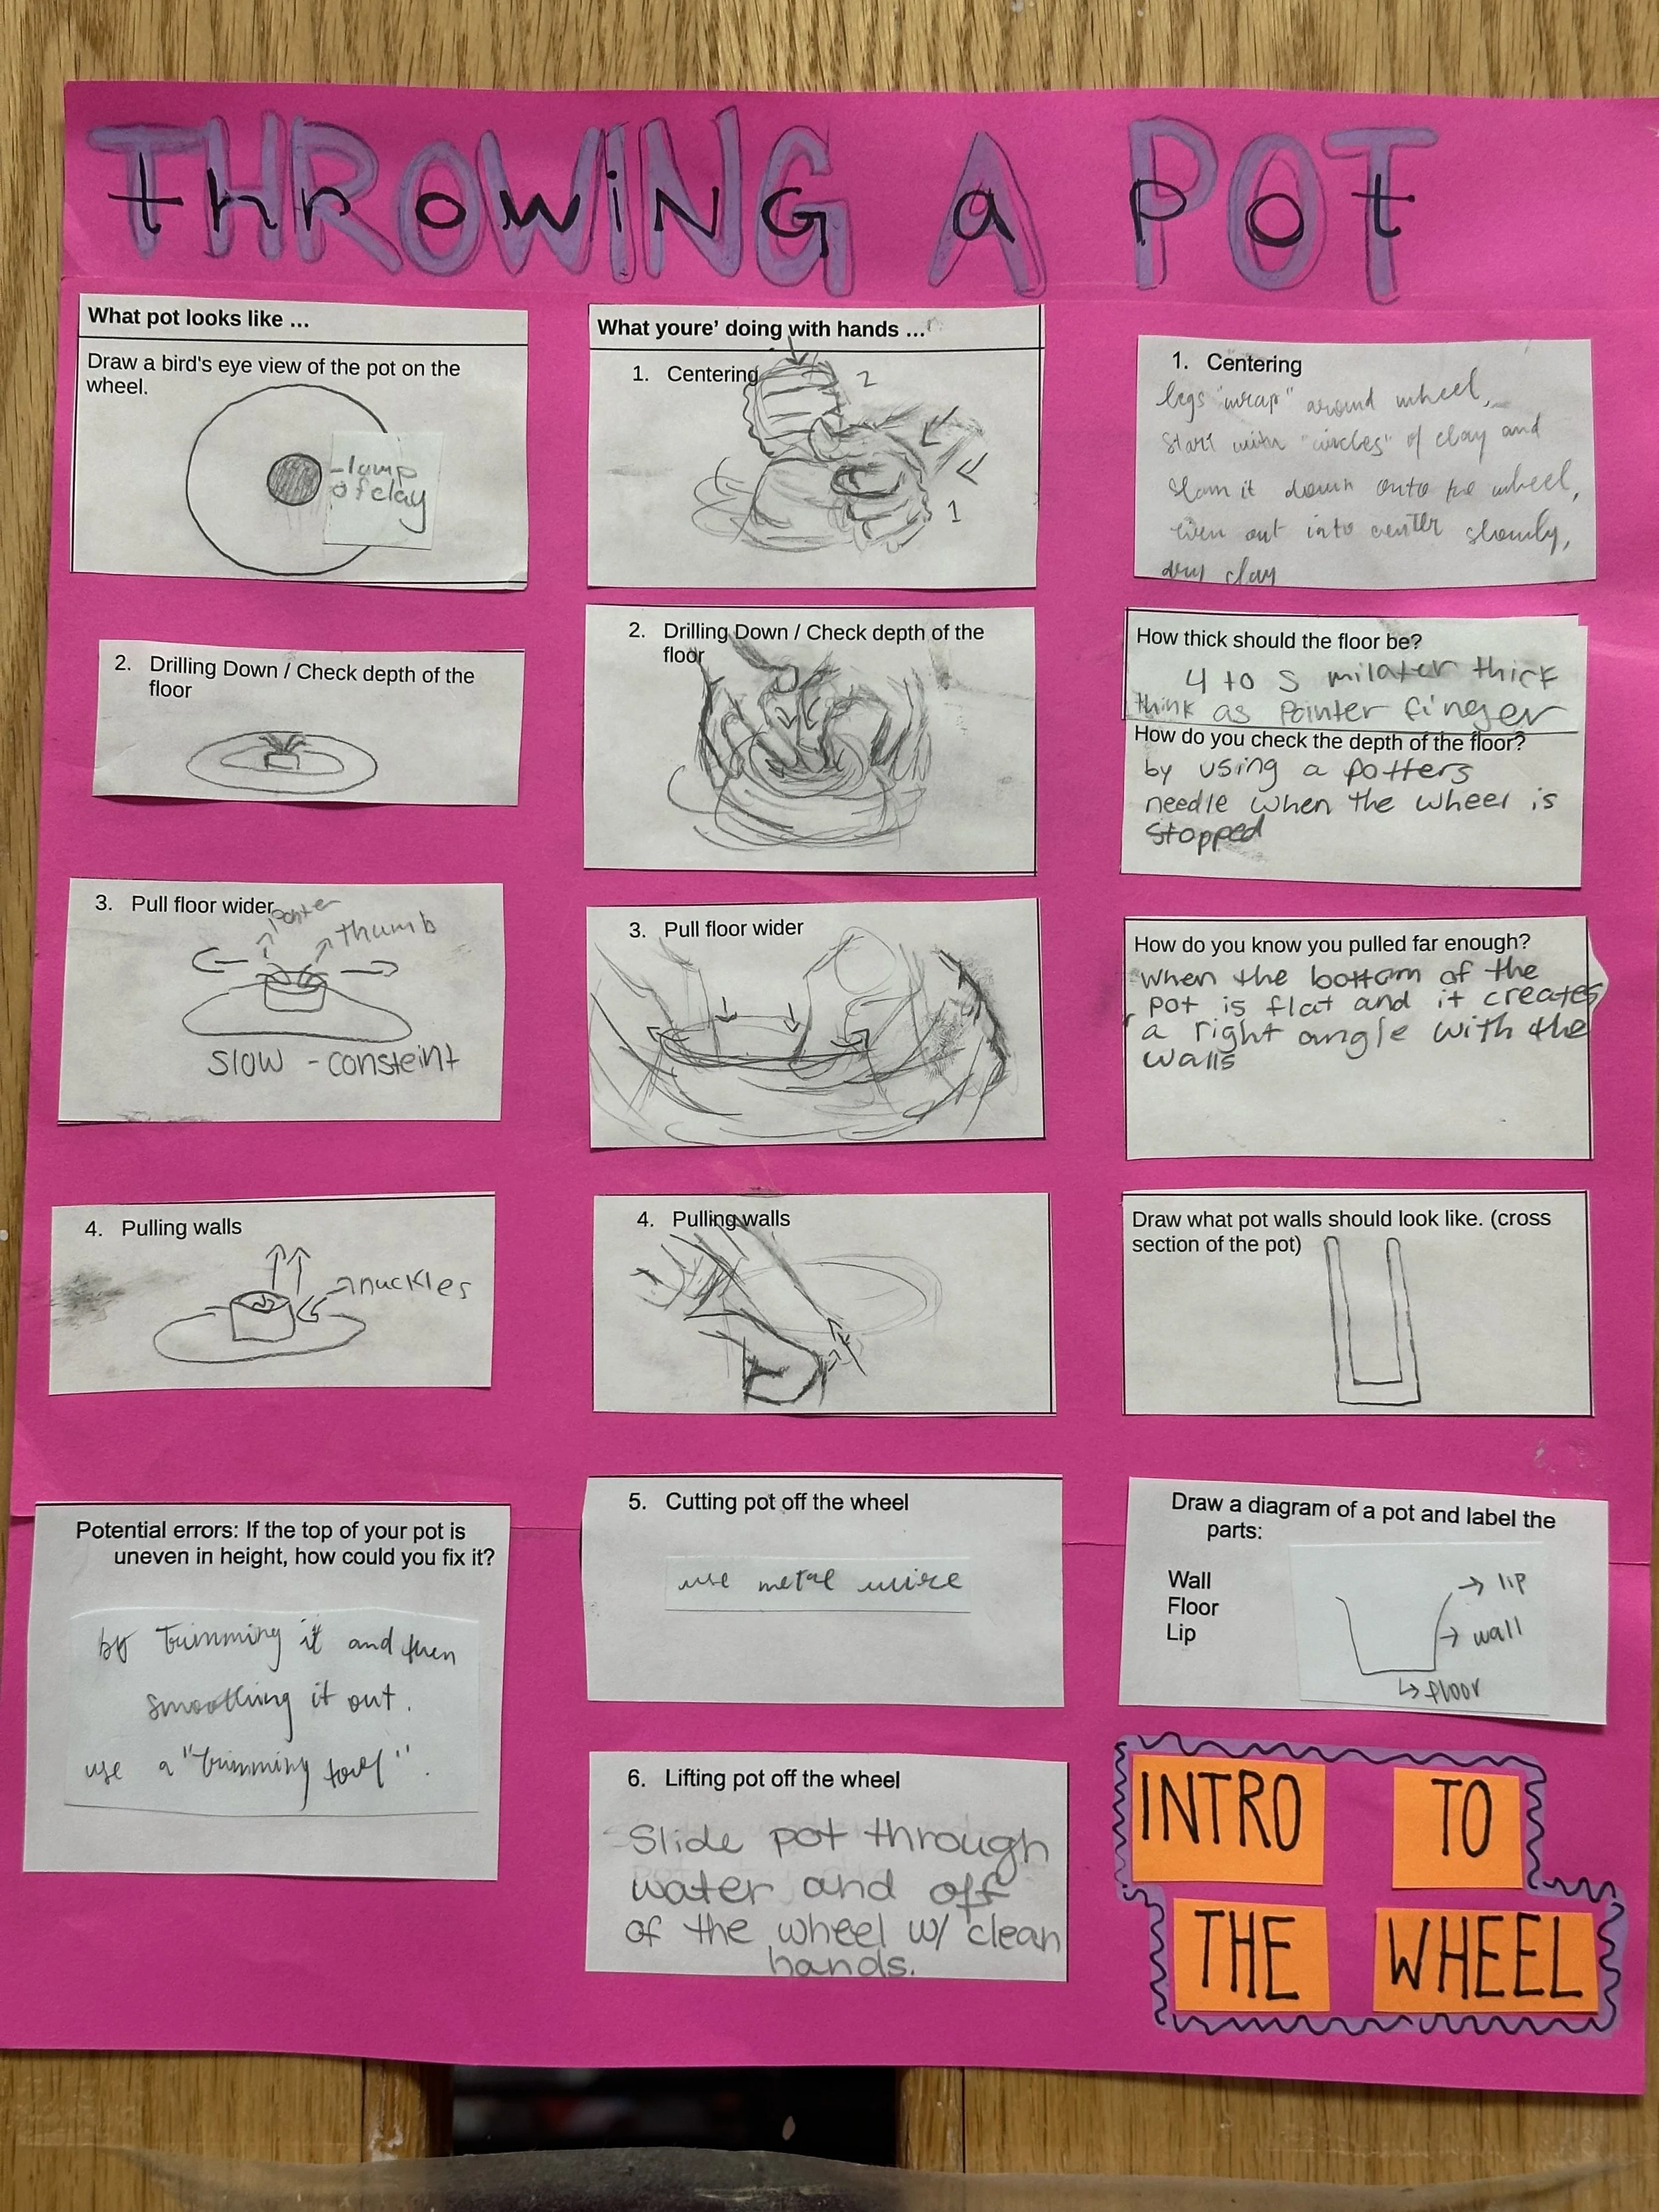 THROWING A POT
throwiNG a pot
What pot looks like ...
Draw a bird's eye view of the pot on the
wheel.
-lump
of clay
2. Drilling Down / Check depth of the
floor
3. Pull floor wider
pointer
thumb
slow - consteint
4. Pulling walls
nuckles
Potential errors: If the top of your pot is
uneven in height, how could you fix it?
by trimming it and then
smoothing it out.
use a "trimming tool".
What youre' doing with hands ...
1. Centering
2
1
2. Drilling Down / Check depth of the
floor
3. Pull floor wider
4. Pulling walls
5. Cutting pot off the wheel
use metal wire
6. Lifting pot off the wheel
Slide pot through
water and off
of the wheel w/ clean
hands.
1. Centering
legs "wrap" around wheel,
start with "circles" of clay and
slam it down onto the wheel,
even out into center slowly,
dry clay
How thick should the floor be?
4 to 5 milater thick
think as pointer finger
How do you check the depth of the floor?
by using a potters
needle when the wheel is
stopped
How do you know you pulled far enough?
when the bottom of the
pot is flat and it creates
a right angle with the
walls
Draw what pot walls should look like. (cross
section of the pot)
Draw a diagram of a pot and label the
parts:
Wall
Floor
Lip
lip
wall
floor
INTRO TO
THE WHEEL